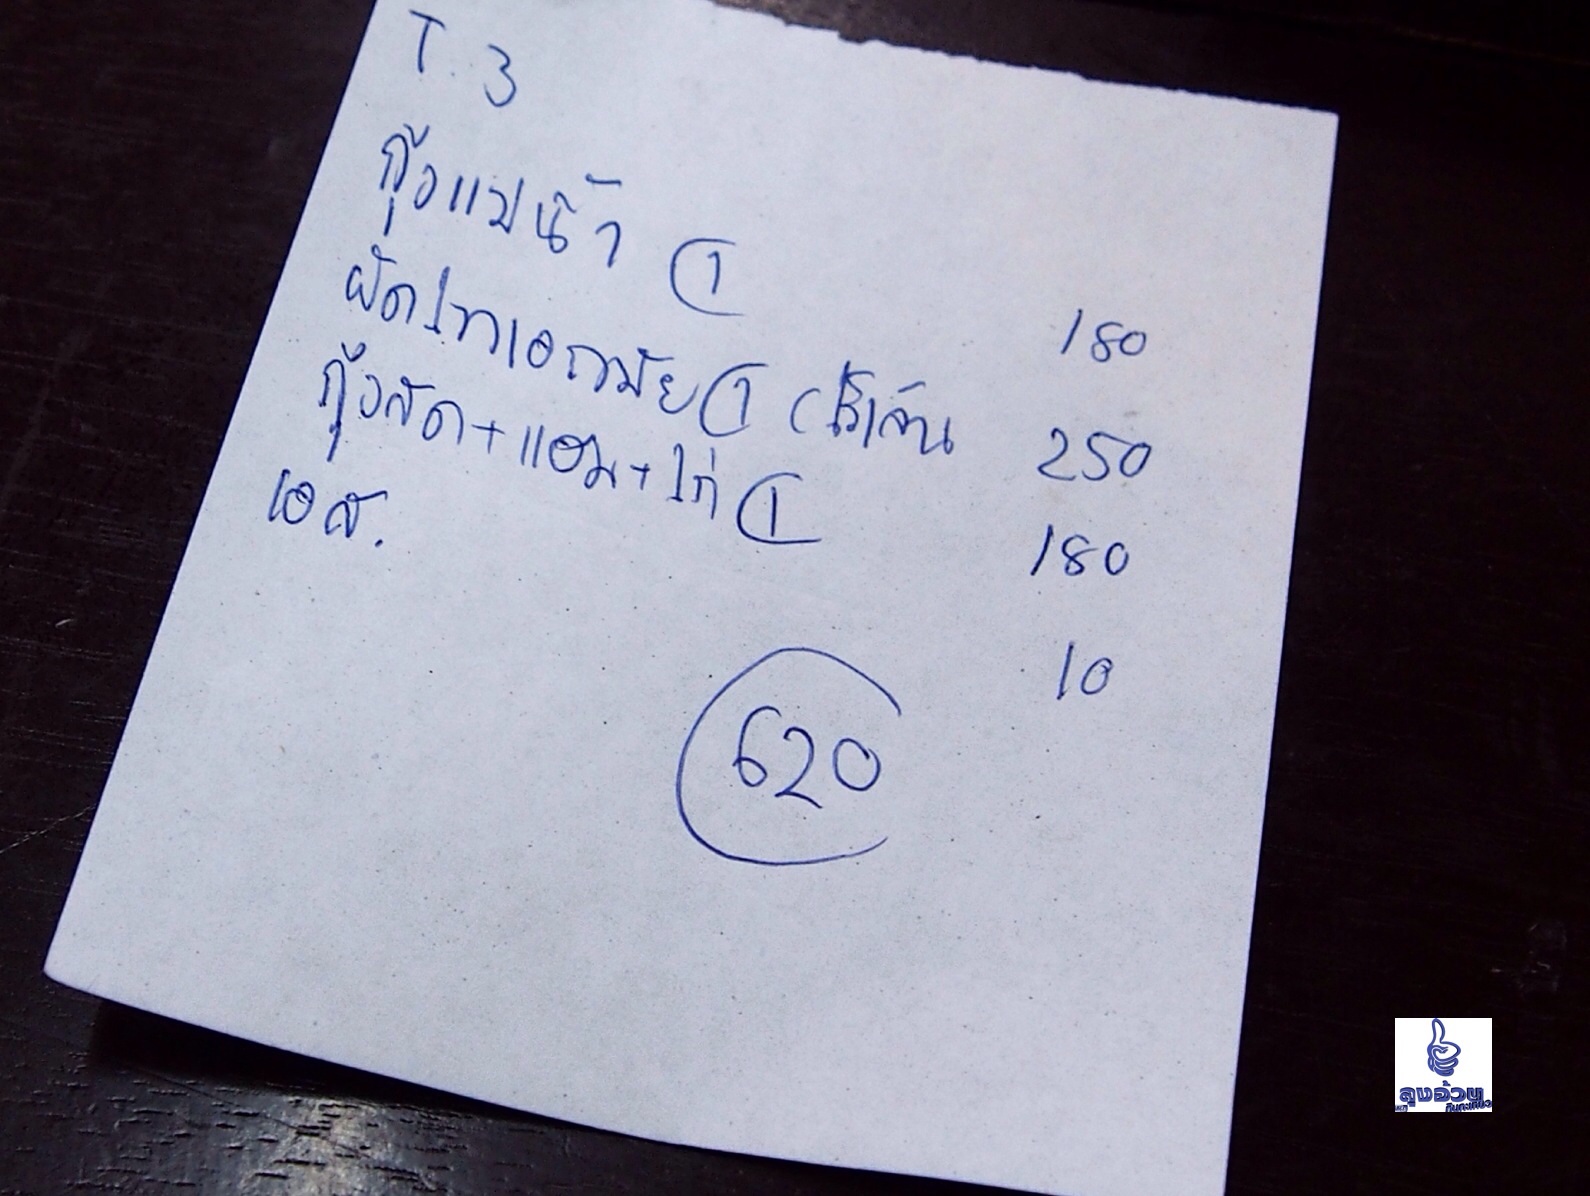 T. 3
กุ้งแม่น้ำ ① 180
ผัดไทเอกมัย ① (ไร้เส้น 250
กุ้งสด+แฮม+ไก่ ① 180
เอส. 10
620
ลุงอ้วน
กินกะเที่ยว